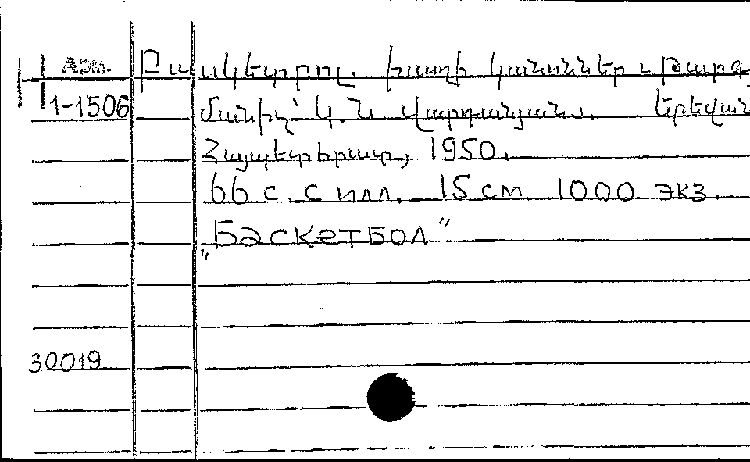 Арт. Բասկետբոլ. խաղի կանոններ. Թարգ
1-1506 մանիչ՝ Կ. Ն. Վարդանյան. Երեվան
Հայպետհրատ, 1950.
66 с. с илл. 15 см 1000 экз.
„Баскетбол“
30019